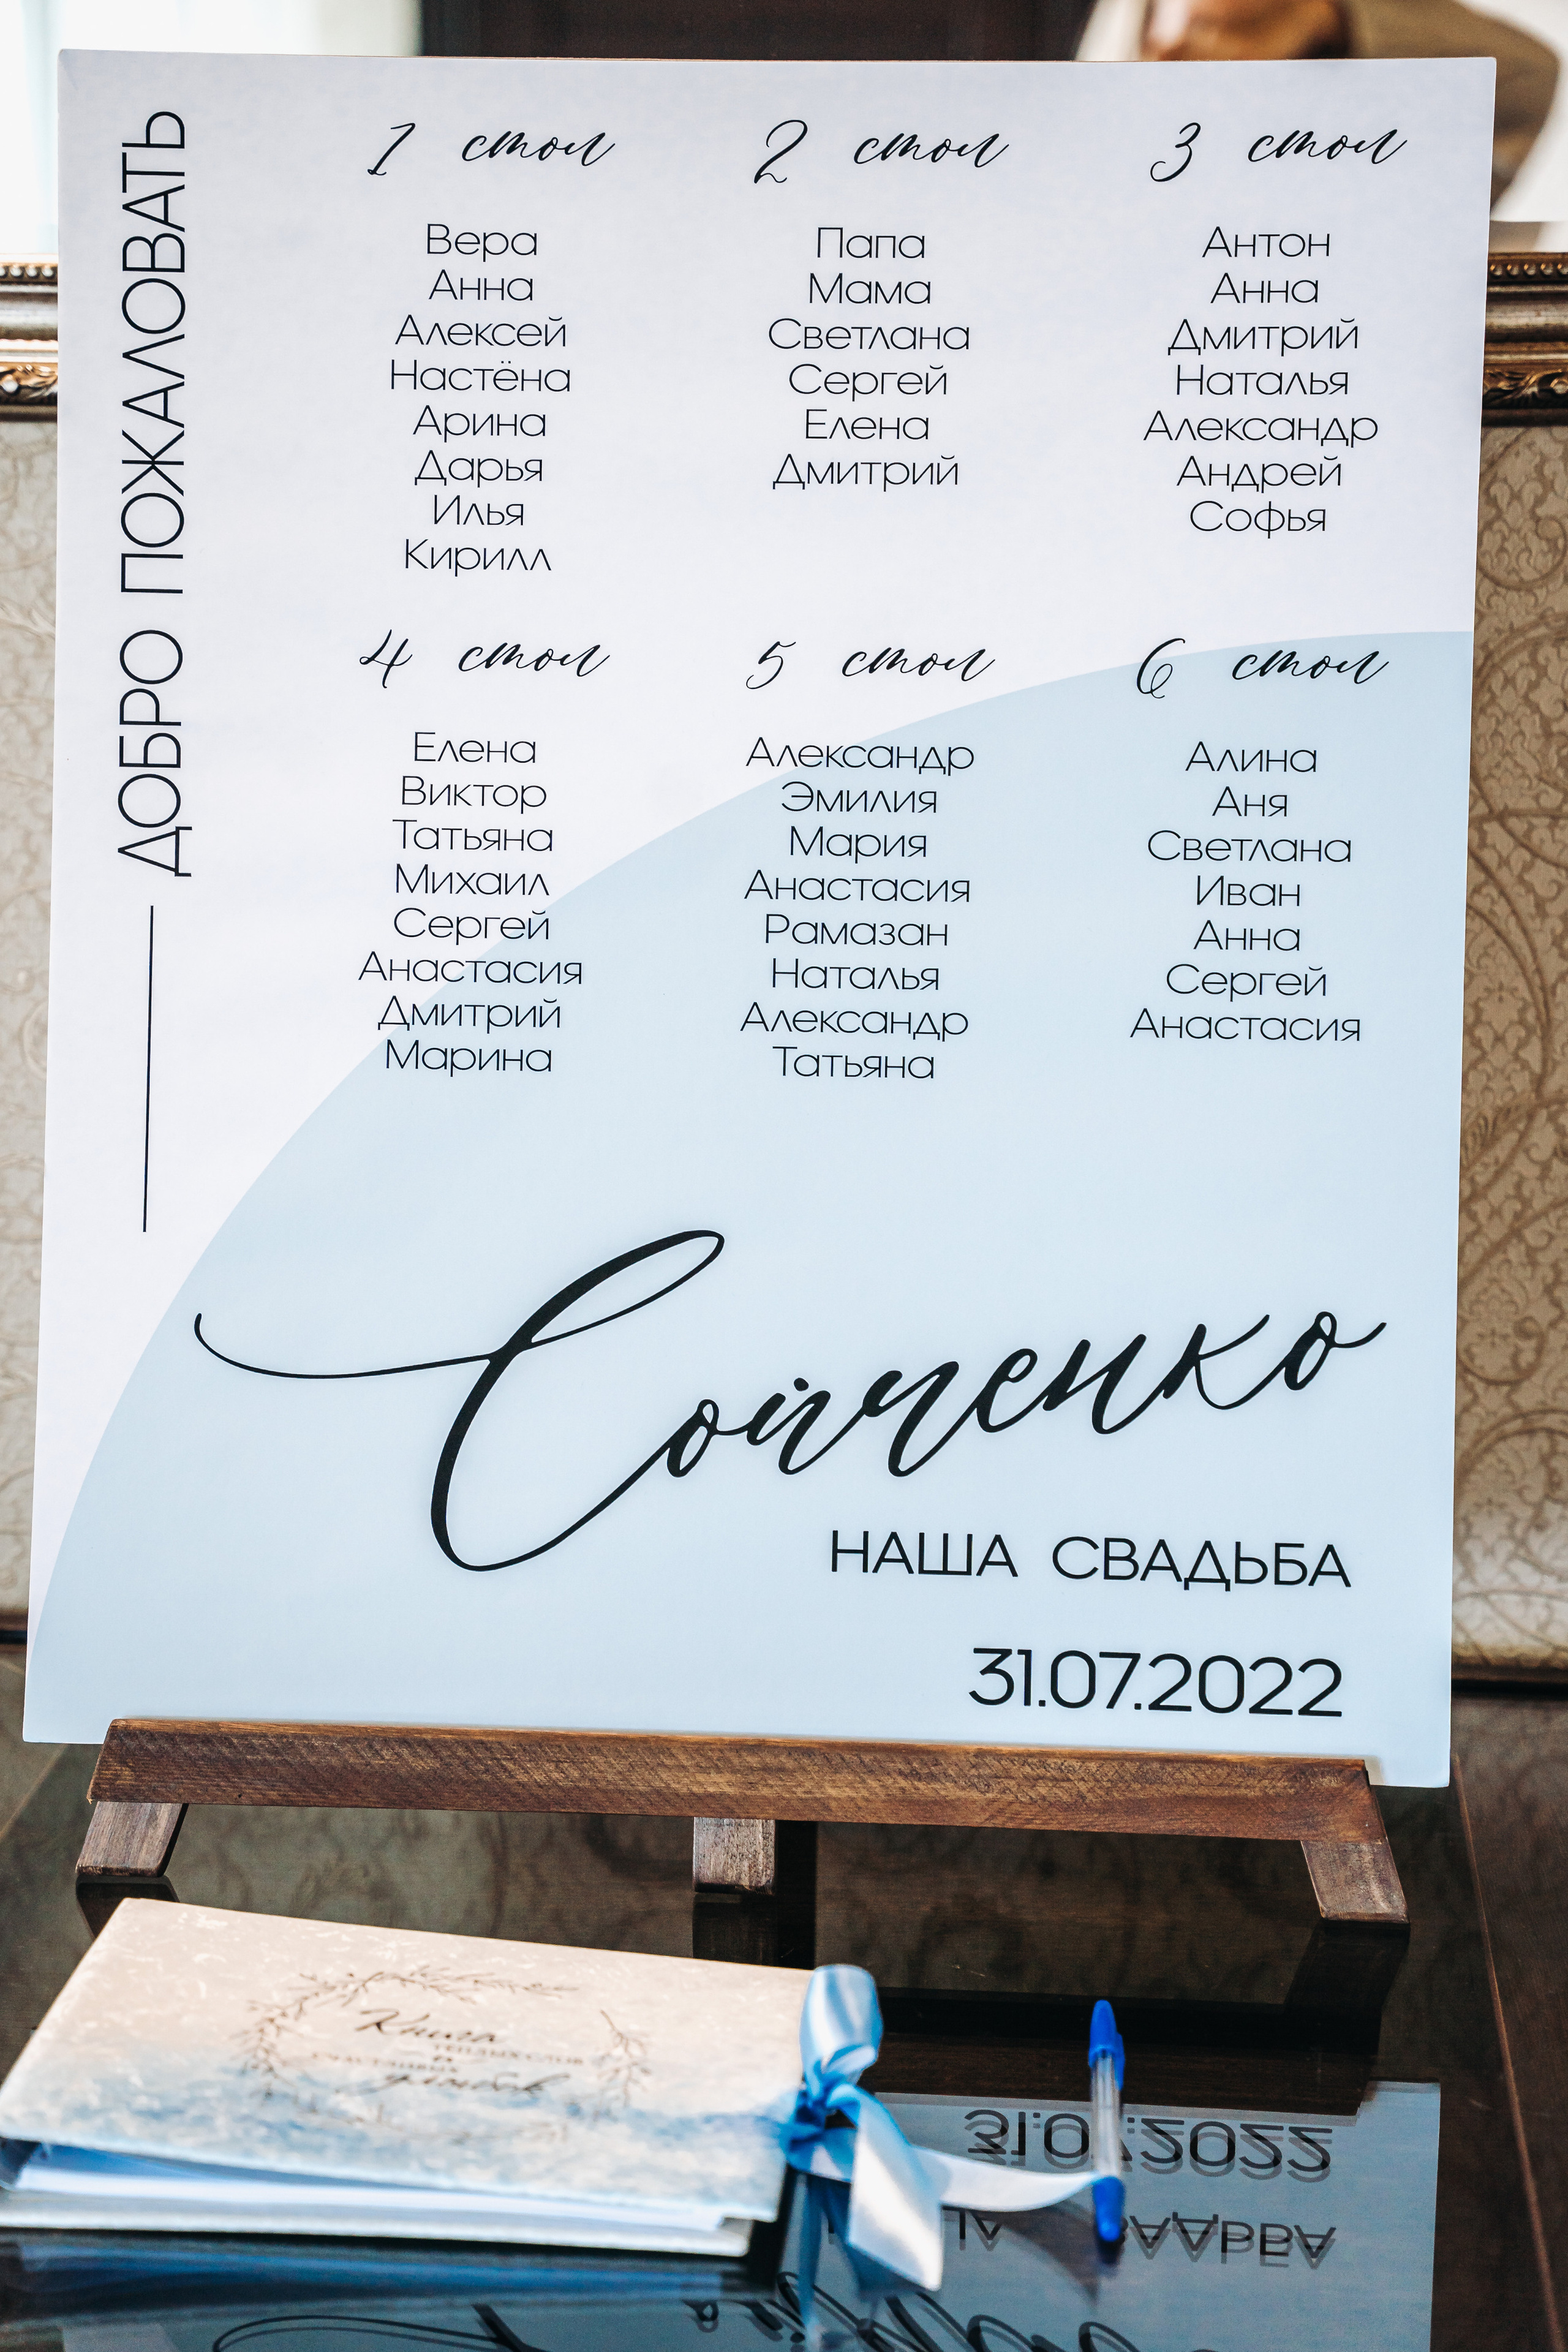 ДОБРО ПОЖАЛОВАТЬ
1 стол
Вера
Анна
Алексей
Настёна
Арина
Дарья
Илья
Кирилл
2 стол
Папа
Мама
Светлана
Сергей
Елена
Дмитрий
3 стол
Антон
Анна
Дмитрий
Наталья
Александр
Андрей
Софья
4 стол
Елена
Виктор
Татьяна
Михаил
Сергей
Анастасия
Дмитрий
Марина
5 стол
Александр
Эмилия
Мария
Анастасия
Рамазан
Наталья
Александр
Татьяна
6 стол
Алина
Аня
Светлана
Иван
Анна
Сергей
Анастасия
Сойченко
НАША СВАДЬБА
31.07.2022
Книга
тёплых слов
и
счастливых
улыбок